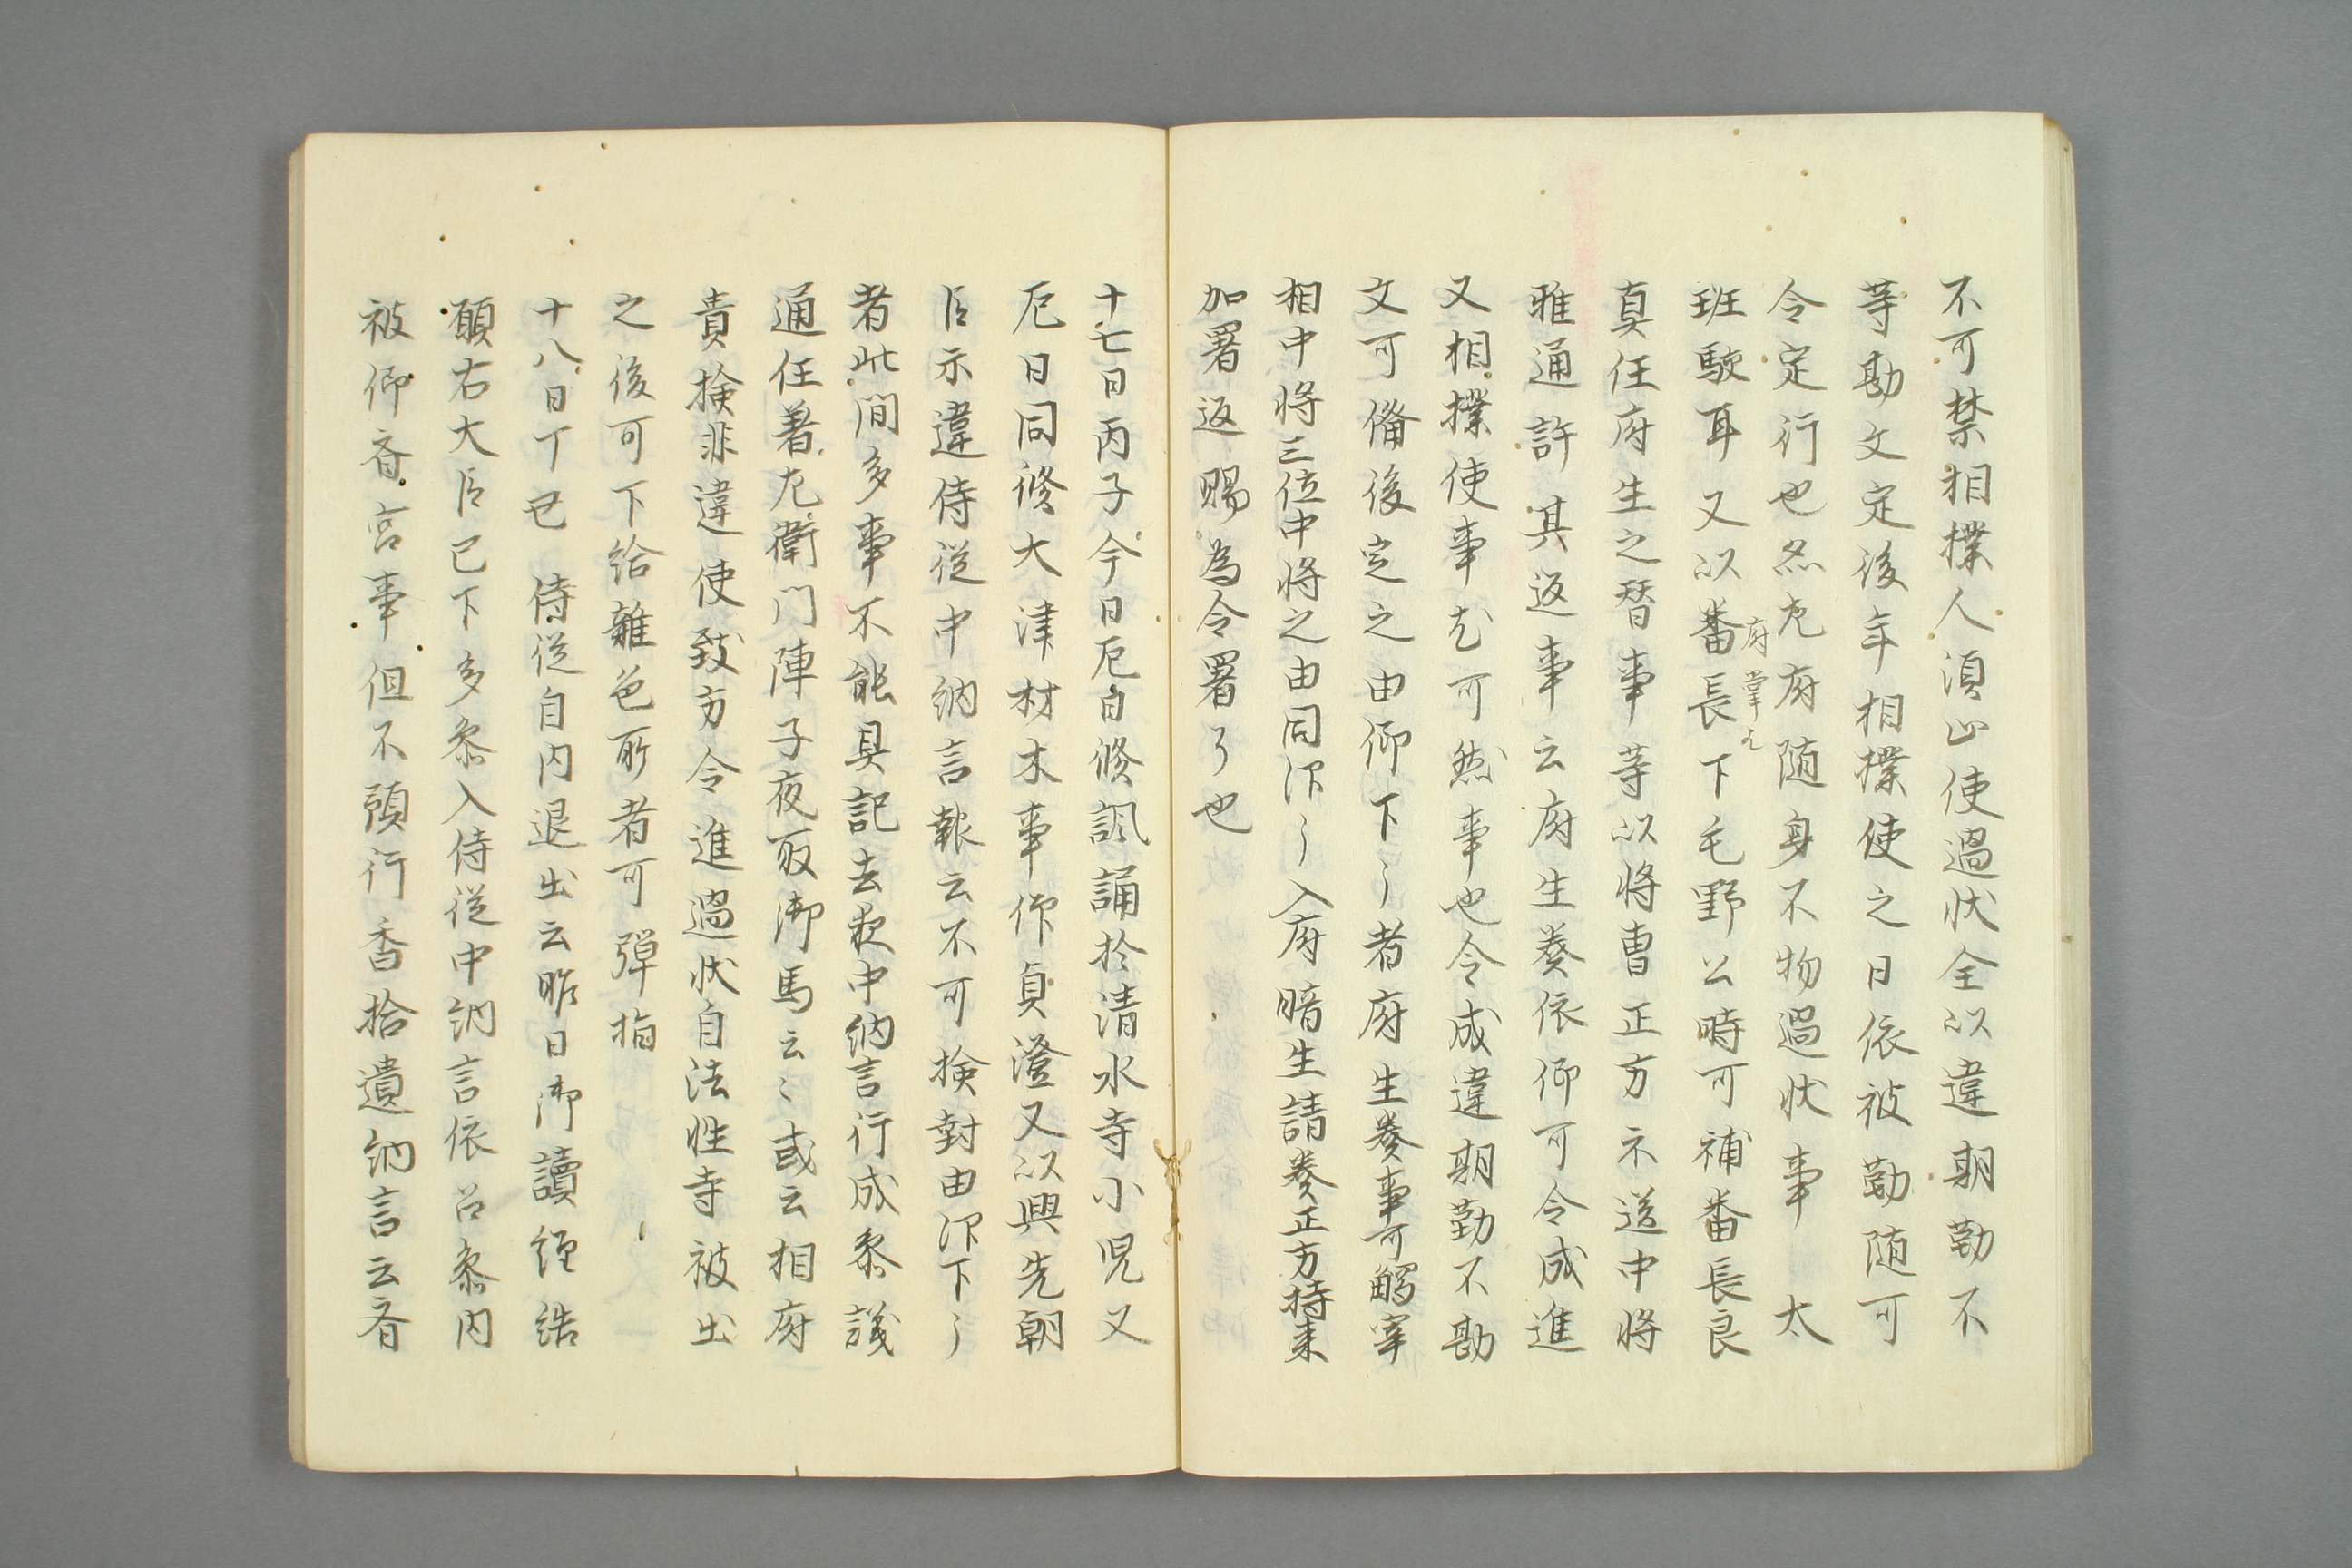 不可禁相撲人須止使過状全以違期勤不
等勘文定後年相撲使之日依被勤随可
令定行也然左府随身不物過状事　太
班駛耳又以番長下毛野公時可補番長良
府掌允
真任府生之替事等以将曹正方示送中将
雅通許其返事云府生奏依仰可令成進
又相撲使事尤可然事也令成違期勤不勘
文可備後定之由仰下〻者府生奏事可觸宰
相中将三位中将之由同仰〻入府暗生請奏正方持来
加署返賜為令署了也
十七日丙子今日厄日修諷誦於清水寺小児又
厄日同修大津材木事仰貞澄又以興先朝
臣示違侍従中納言報云不可検封由仰下〻
者此間多事不能具記去夜中納言行成参議
通任着左衛門陣子夜取御馬云〻或云相府
責検非違使致方令進過状自法性寺被出
之後可下給雑色所者可弾指
十八日丁巳　侍従自内退出云昨日御讀経結
願右大臣已下多参入侍従中納言依召参内
被仰斎宮事但不預行香拾遺納言云斎